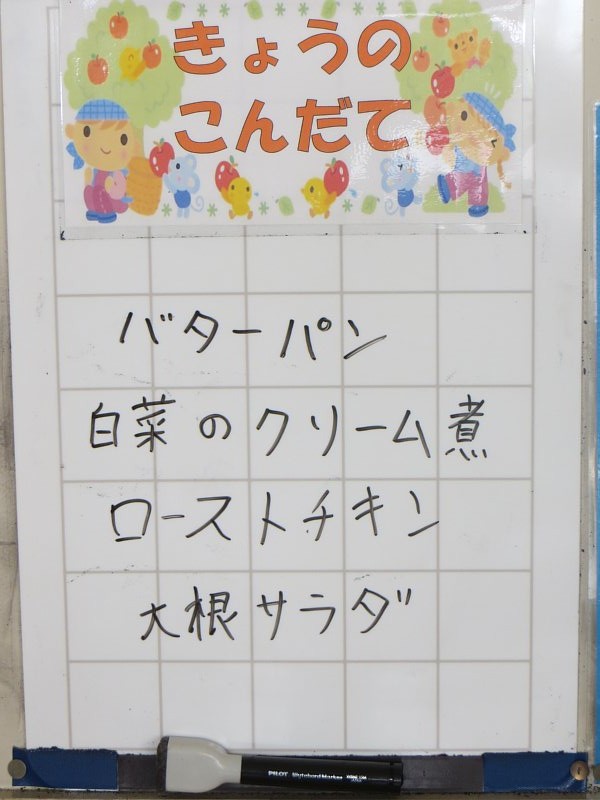 きょうの
こんだて
バターパン
白菜のクリーム煮
ローストチキン
大根サラダ
PILOT WhiteboardMarker